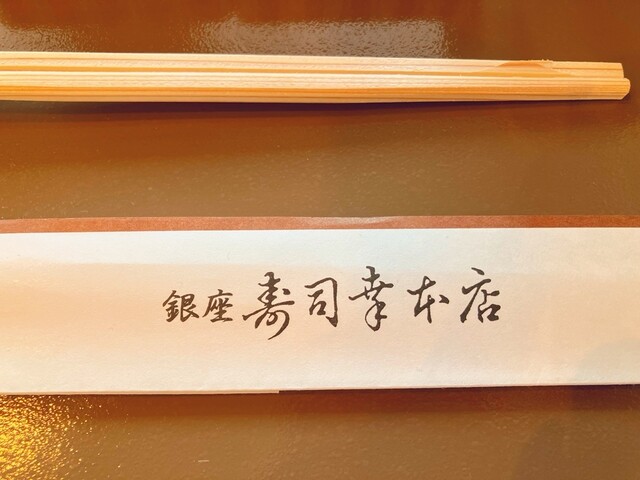 銀座寿司幸本店